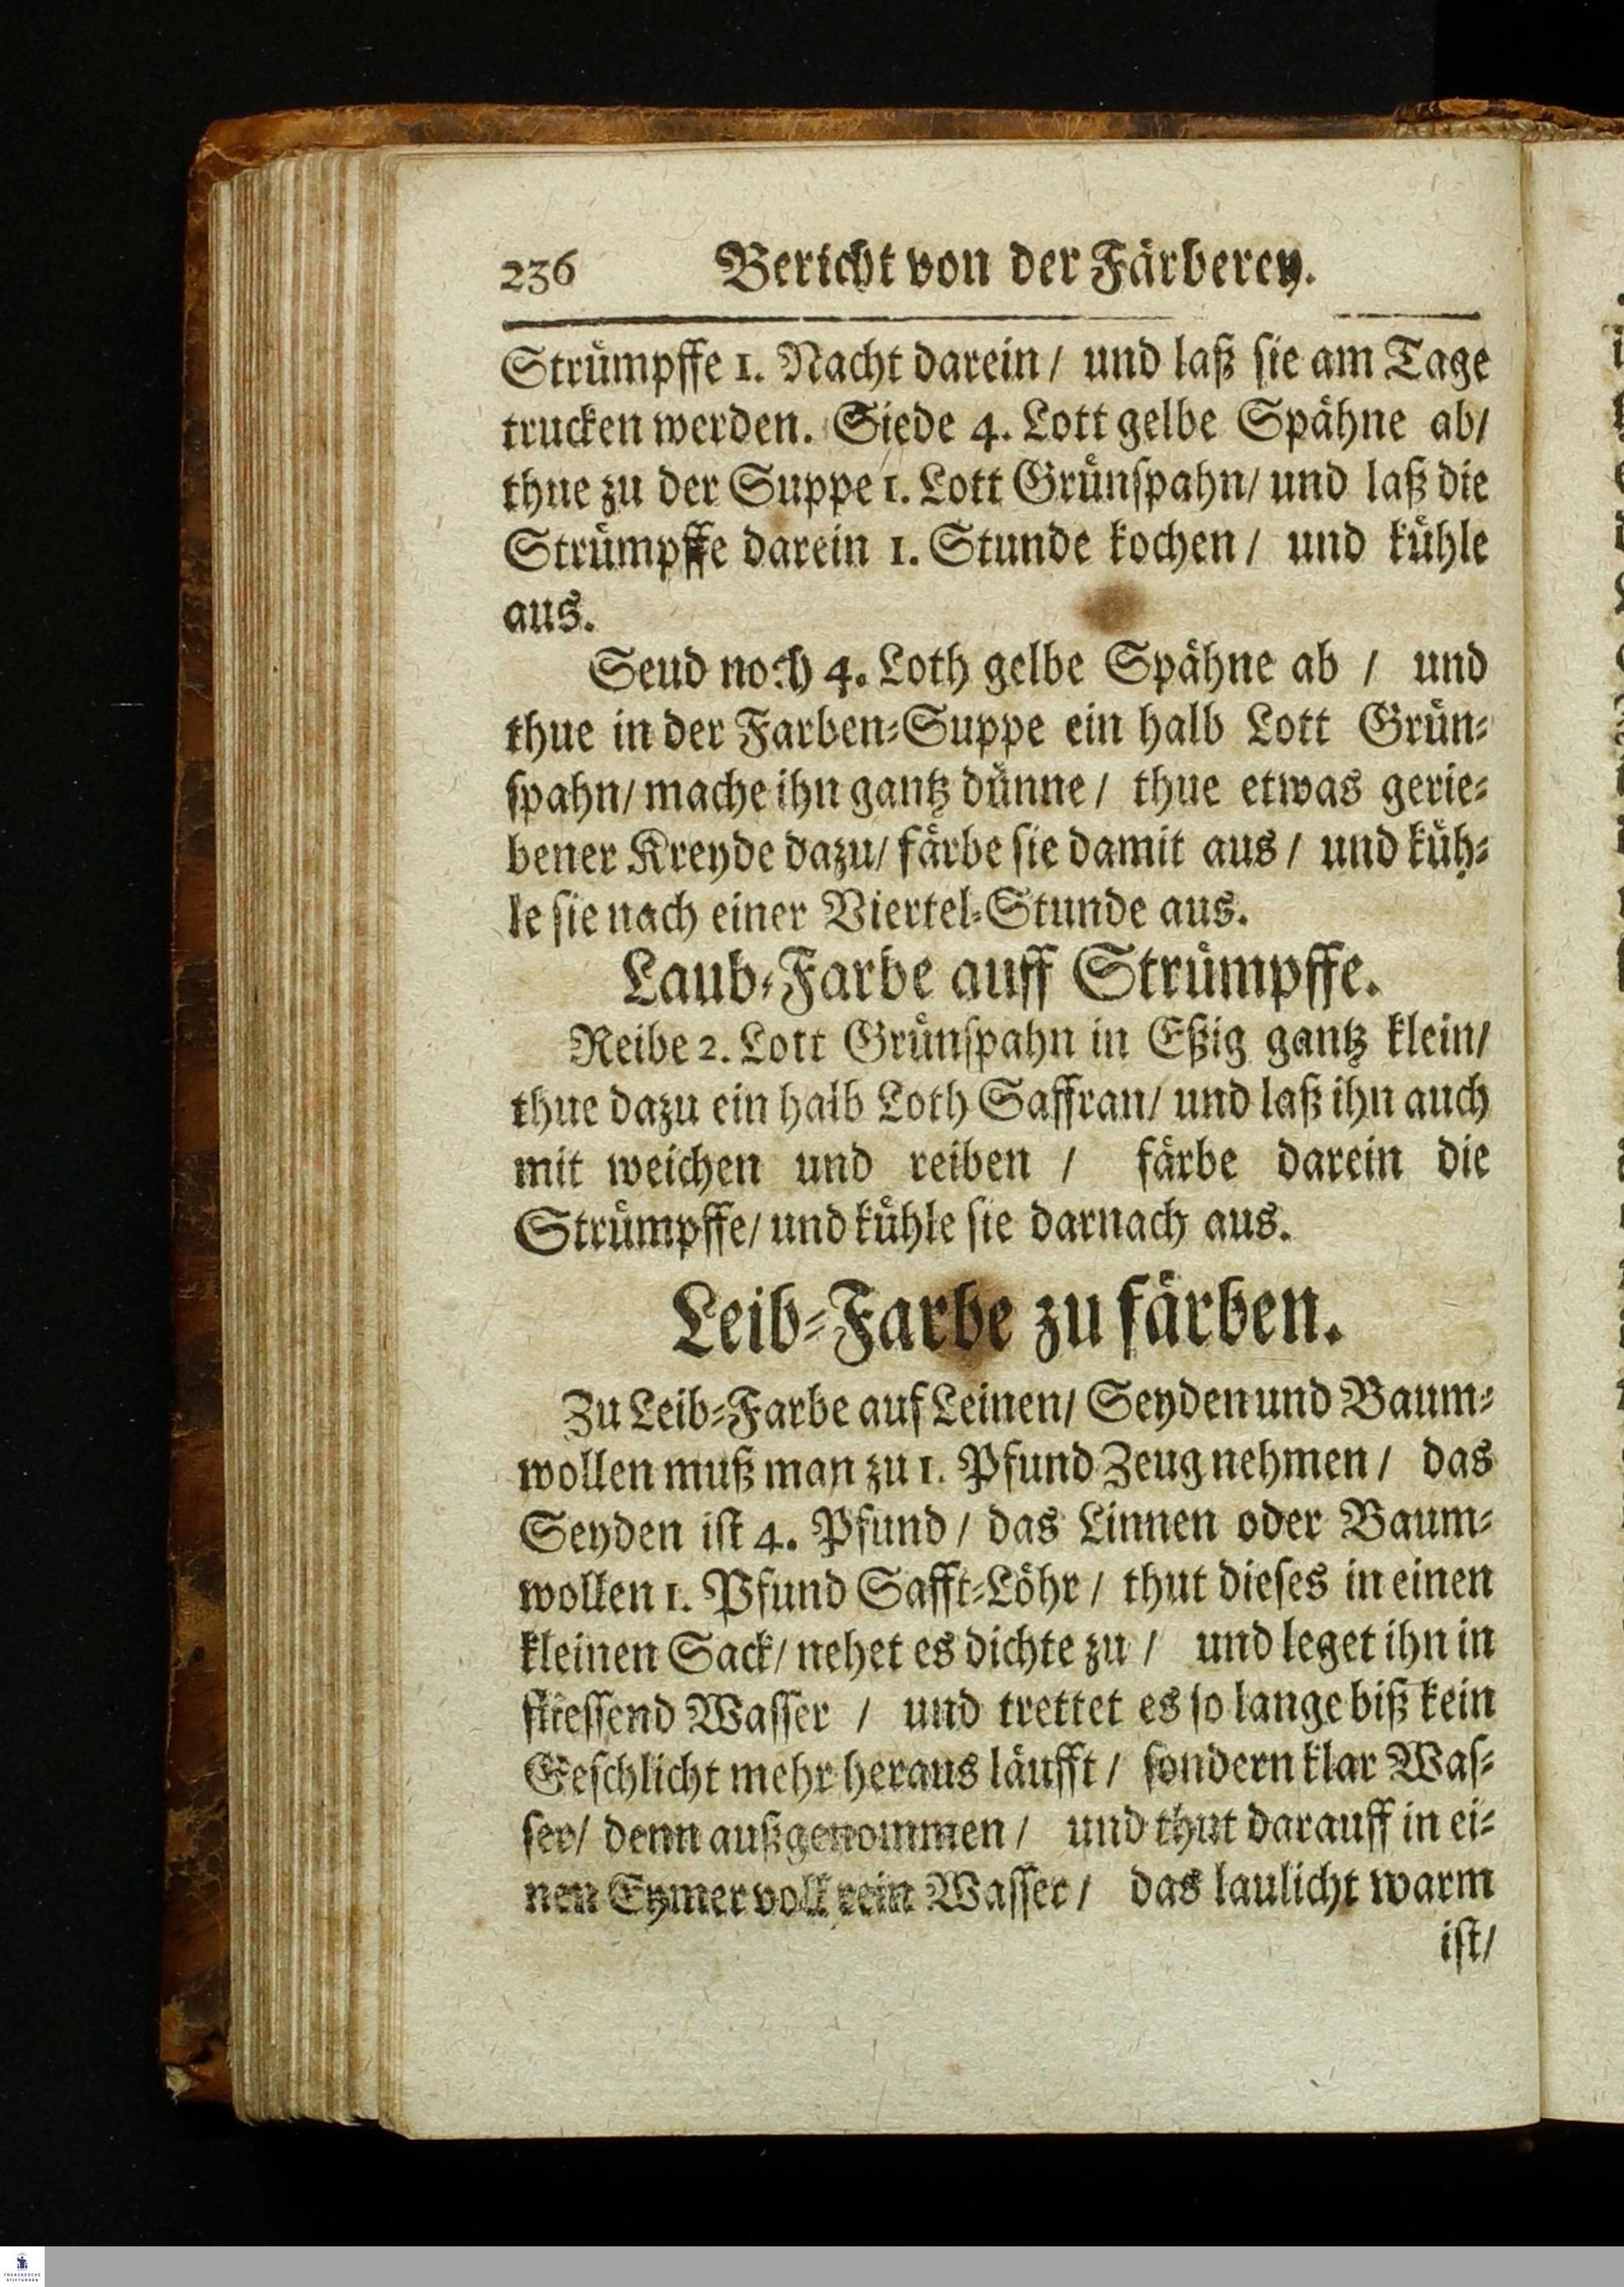 236 Bericht von der Färberey.
Strümpffe 1. Nacht darein/ und laß sie am Tage
trucken werden. Siede 4. Lott gelbe Spähne ab/
thue zu der Suppe 1. Lott Grünspahn/ und laß die
Strümpffe darein 1. Stunde kochen/ und kühle
aus.
Seud noch 4. Loth gelbe Spähne ab / und
thue in der Farben-Suppe ein halb Lott Grün-
spahn/ mache ihn gantz dünne/ thue etwas gerie-
bener Kreyde dazu/ färbe sie damit aus/ und küh-
le sie nach einer Viertel-Stunde aus.
Laub-Farbe auff Strümpffe.
Reibe 2. Lott Grünspahn in Eßig gantz klein/
thue dazu ein halb Loth Saffran/ und laß ihn auch
mit weichen und reiben / färbe darein die
Strümpffe/ und kühle sie darnach aus.
Leib-Farbe zu färben.
Zu Leib-Farbe auf Leinen/ Seyden und Baum-
wollen muß man zu 1. Pfund Zeug nehmen/ das
Seyden ist 4. Pfund/ das Linnen oder Baum-
wollen 1. Pfund Safft-Löhr/ thut dieses in einen
kleinen Sack/ nehet es dichte zu/ und leget ihn in
fliessend Wasser / und trettet es so lange biß kein
Geschlicht mehr heraus läufft/ sondern klar Was-
ser/ denn außgenommen/ und thut darauff in ei-
nen Eymer voll rein Wasser/ das laulicht warm
ist/
FRANCKESCHE
STIFTUNGEN